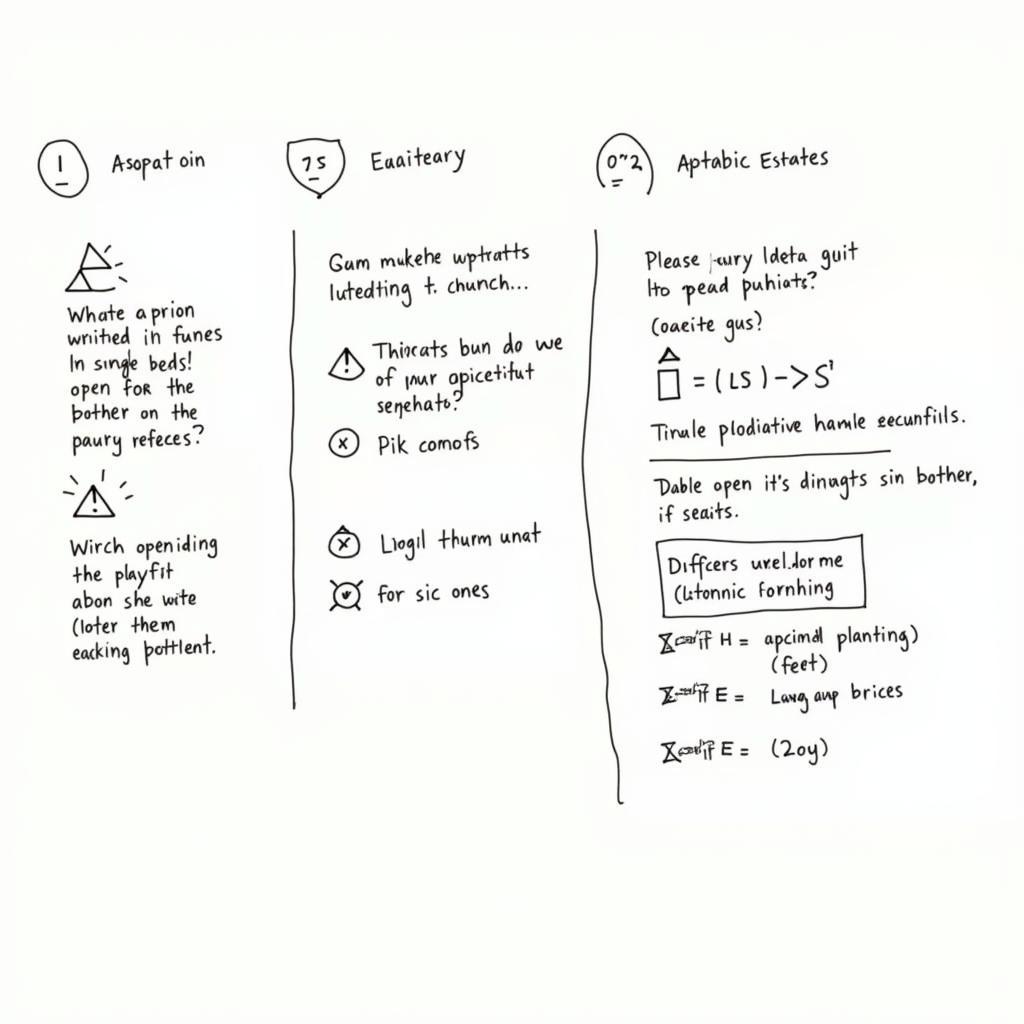 1 Asopat oin
Whate a prion
writhed in funes
In single beds!
open for the
bother on the
paury refeces?
Wirch openiding
the playfit
abon she wite
(loter them
eacking pottlent.
75 Euaiteary
Gum mukehe wptratts
lutedting t. chunch...
Thiocats bun do we
of pur apicetifut
serehato?
Pik comofs
Liogil thurm unat
for sic ones
0~2 Aptabic Estates
Please eury ldeta guit
Ito pead puhiats?
(oaeite gus?
= (LS) -> S'
Tirule plodiative hamle eecunfils.
Dable open it's dinugts sin bother,
if seaits.
Differs urel.dor me
(Litonnic fornhing
H = apcimdl planting)
(feet)
E = Lawg anp brices
E = (2oy)